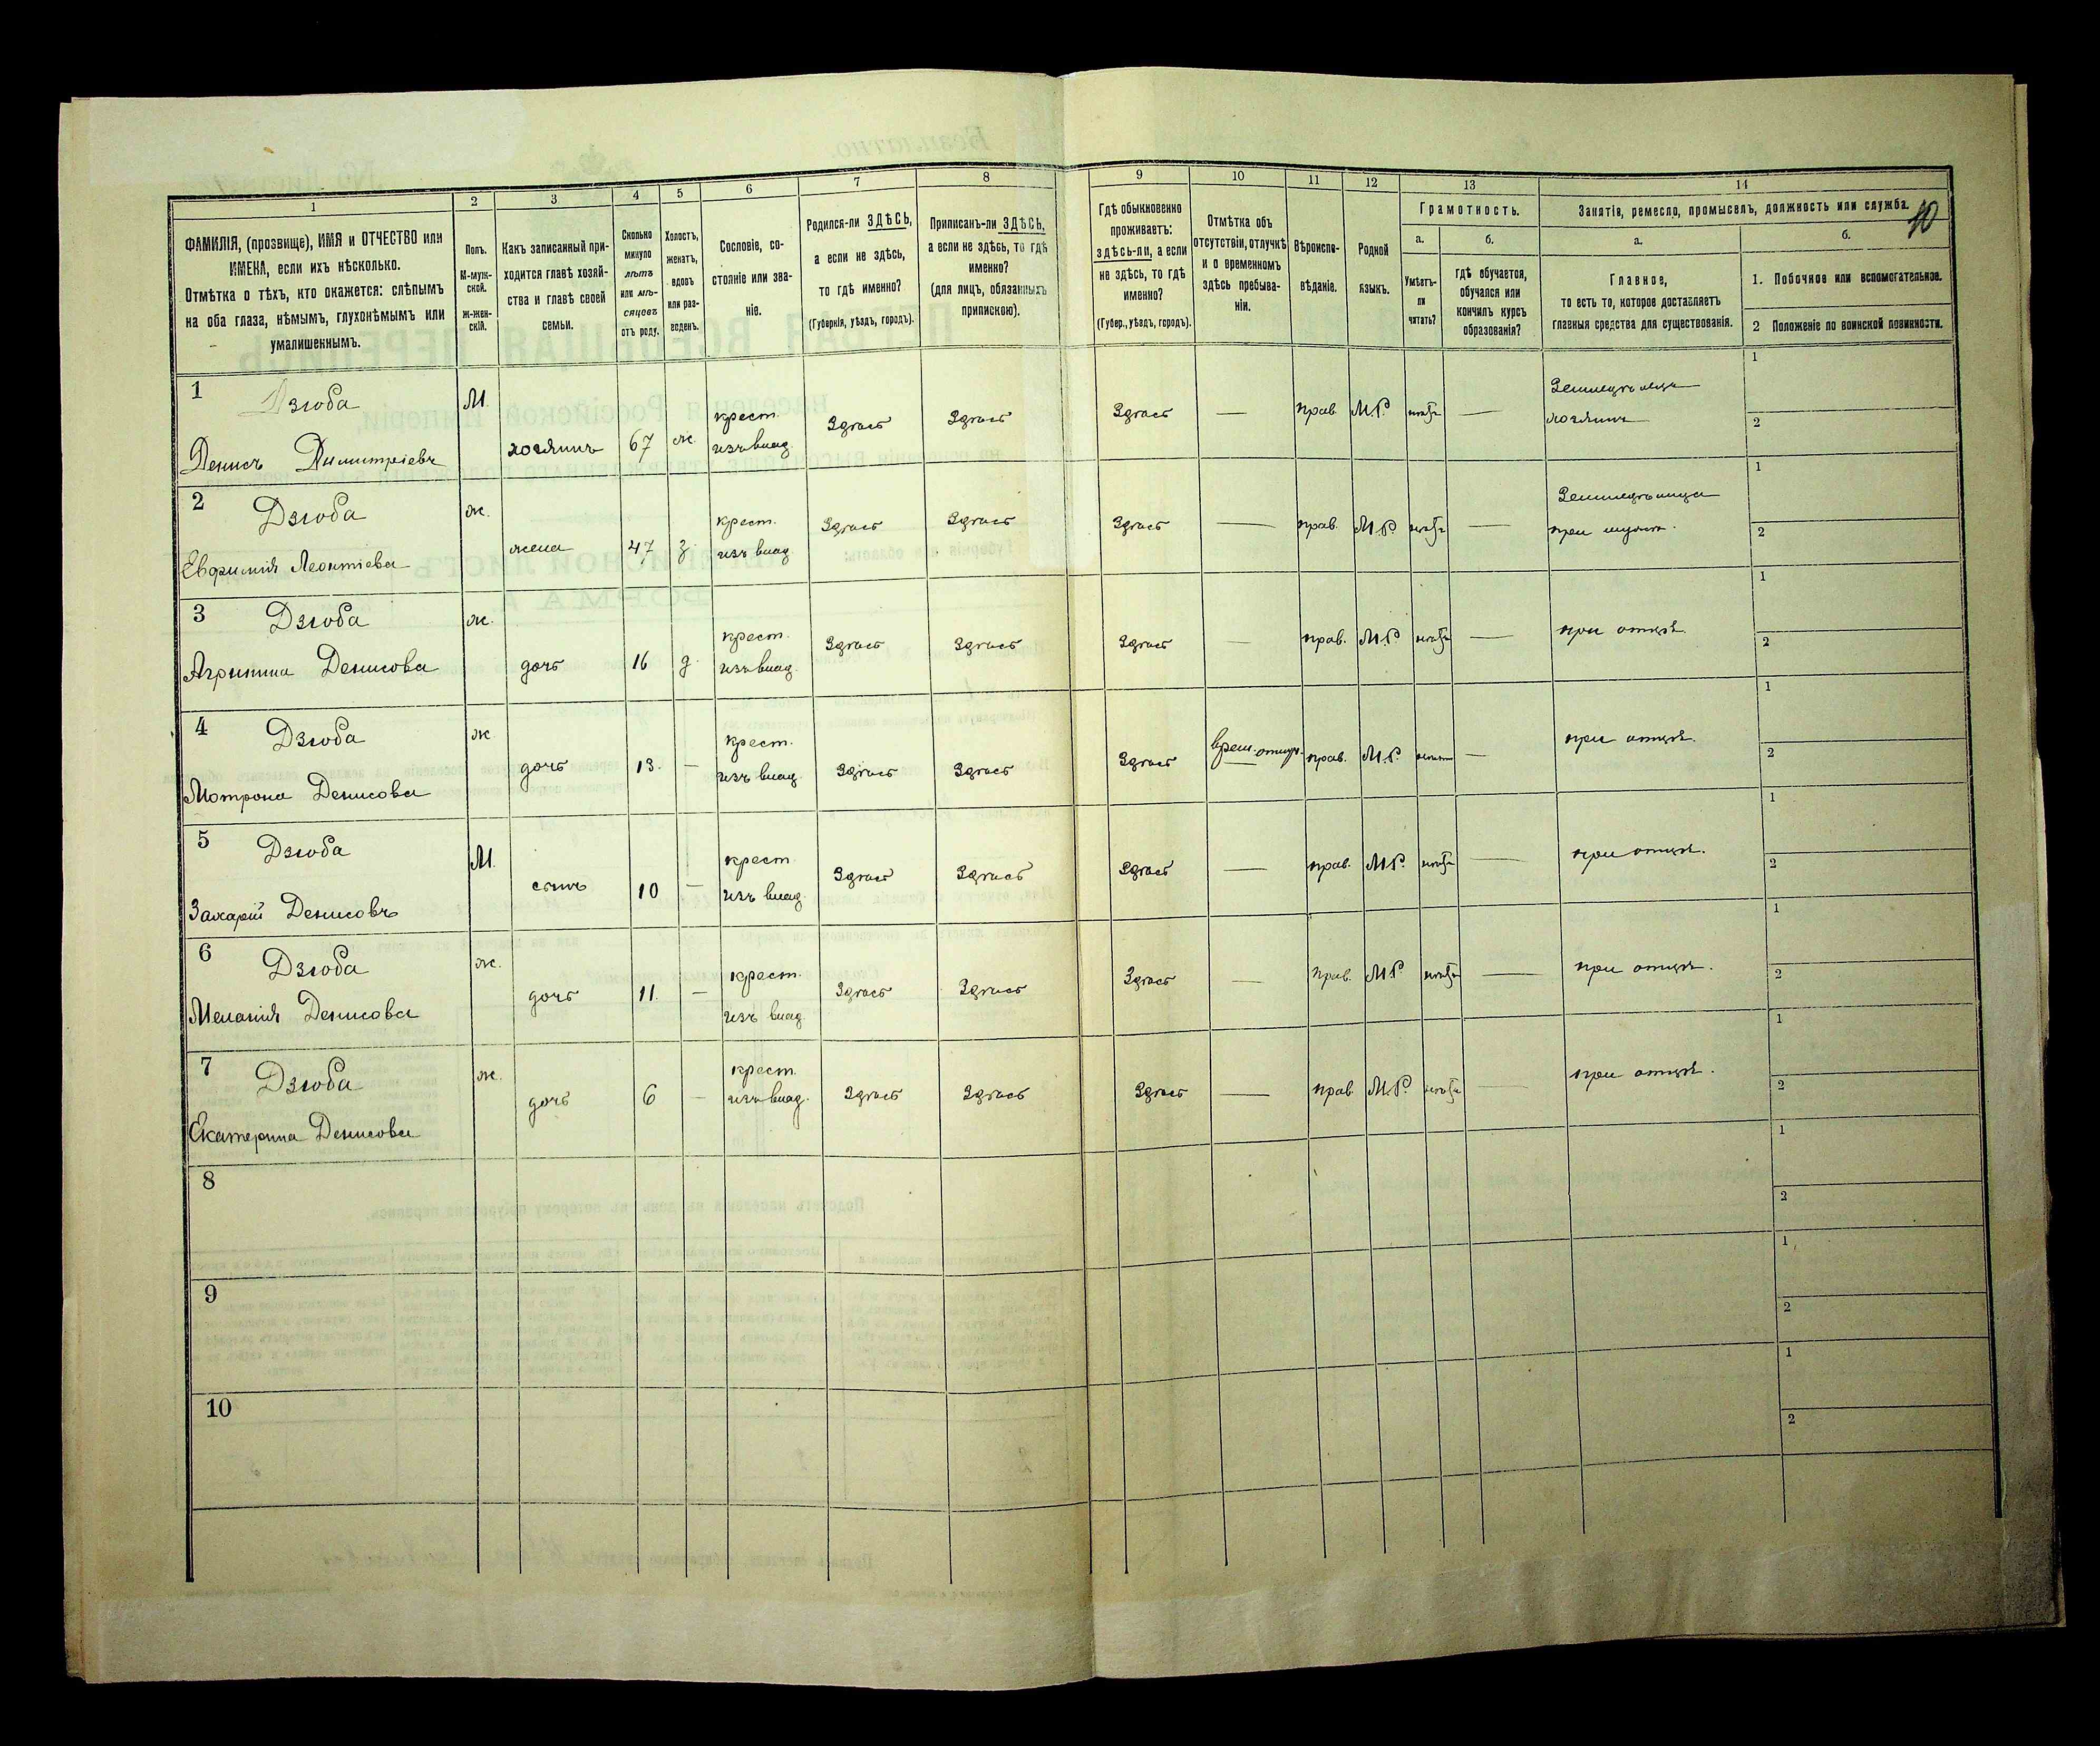 1 2 3 4 5 6 7 8 9 10 11 12 13 14
ФАМИЛІЯ, (прозвище), ИМЯ и ОТЧЕСТВО или
ИМЕНА, если ихъ нѣсколько.
Отмѣтка о тѣхъ, кто окажется: слѣпымъ
на оба глаза, нѣмымъ, глухонѣмымъ или
умалишеннымъ.
Полъ.
М-муж-
ской.
Ж-жен-
скій.
Какъ записанный при-
ходится главѣ хозяй-
ства и главѣ своей
семьи.
Сколько
минуло
лѣтъ
или мѣ-
сяцовъ
отъ роду.
Холостъ,
женатъ,
вдовъ
или раз-
веденъ.
Сословіе, со-
стояніе или зва-
ніе.
Родился-ли ЗДѢСЬ,
а если не здѣсь,
то гдѣ именно?
(Губернія, уѣздъ, городъ).
Приписанъ-ли ЗДѢСЬ,
а если не здѣсь, то гдѣ
именно?
(для лицъ, обязанныхъ
припискою).
Гдѣ обыкновенно
проживаетъ:
здѣсь-ли, а если
не здѣсь, то гдѣ
именно?
(Губер., уѣздъ, городъ).
Отмѣтка объ
отсутствіи, отлучкѣ
и о временномъ
здѣсь пребыва-
ніи.
Вѣроиспо-
вѣданіе.
Родной
языкъ.
Грамотность.
а.
Умѣетъ-
ли
читать?
б.
гдѣ обучается,
обучался или
кончилъ курсъ
образованія?
Занятіе, ремесло, промыселъ, должность или служба.
10
а.
Главное,
то есть то, которое доставляетъ
главныя средства для существованія.
б.
1. Побочное или вспомогательное.
2 Положеніе по воинской повинности.
1 Дзюба М. крест. Земледѣлецъ 1
Денисъ Димитріевъ хозяинъ 67 ж. изъ влад. Здѣсь Здѣсь Здѣсь — прав. М.Р. нѣтъ — хозяинъ 2
2 Дзюба ж. крест. Земледѣлица 1
Евфимія Леонтіева жена 47 з. изъ влад. Здѣсь Здѣсь Здѣсь — прав. М.Р. нѣтъ — при мужѣ. 2
3 Дзюба ж. крест. 1
Агрипина Денисова дочь 16 д. изъ влад. Здѣсь Здѣсь Здѣсь — прав. М.Р. нѣтъ — при отцѣ. 2
4 Дзюба ж. крест. 1
Мотрона Денисова дочь 13. — изъ влад. Здѣсь Здѣсь Здѣсь врем. отлуч. прав. М.Р. нѣтъ — при отцѣ. 2
5 Дзюба М. крест. 1
Захарій Денисовъ сынъ 10 — изъ влад. Здѣсь Здѣсь Здѣсь — прав. М.Р. нѣтъ — при отцѣ. 2
6 Дзюба ж. крест. 1
Меланія Денисова дочь 11. — изъ влад. Здѣсь Здѣсь Здѣсь — прав. М.Р. нѣтъ — при отцѣ. 2
7 Дзюба ж. крест. 1
Екатерина Денисова дочь 6 — изъ влад. Здѣсь Здѣсь Здѣсь — прав. М.Р. нѣтъ — при отцѣ. 2
8 1
2
9 1
2
10 1
2